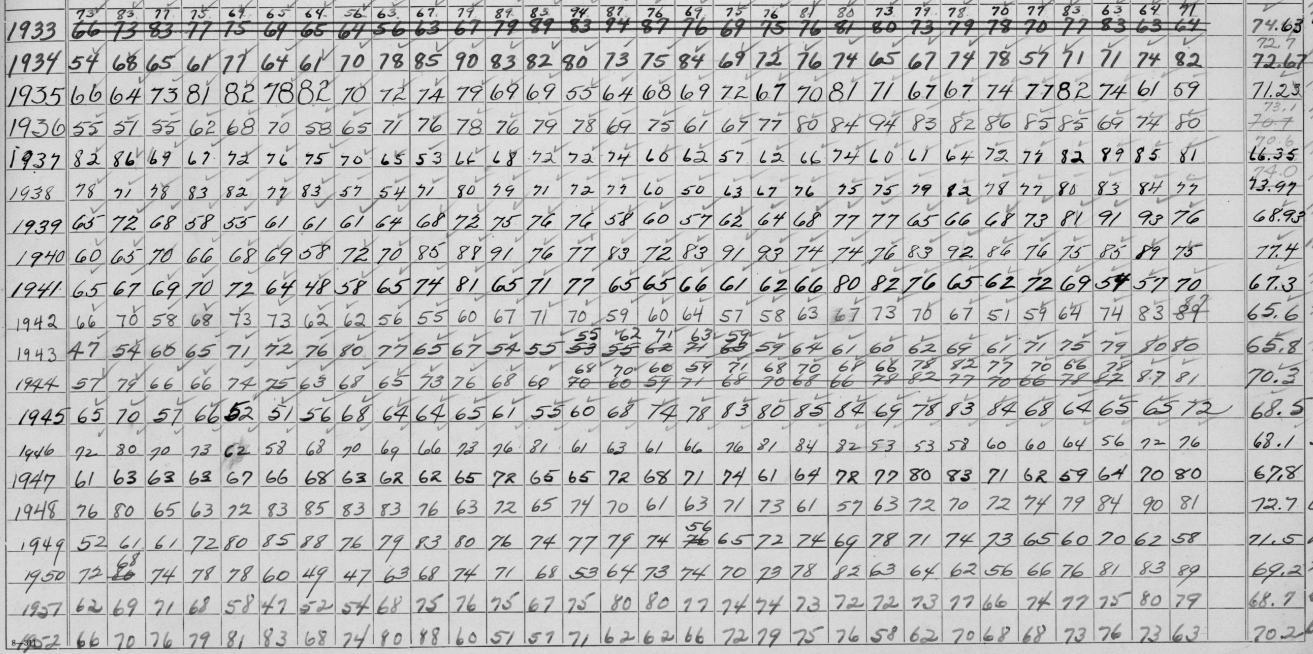 73 83 77 75 69 65 64 56 63 67 79 89 83 94 87 76 69 75 76 81 80 73 79 78 70 77 83 63 64 71
1933 66 73 83 77 75 69 65 64 56 63 67 79 89 83 94 87 76 69 75 76 81 80 73 79 78 70 77 83 63 64 74.63
72.7
1934 54 68 65 61 77 64 61 70 78 85 90 83 82 80 73 75 84 69 72 76 74 65 67 74 78 57 71 71 74 82 72.67
1935 66 64 73 81 82 78 82 70 72 74 79 69 69 55 64 68 69 72 67 70 81 71 67 67 74 77 82 74 61 59 71.23
73.1
1936 55 51 55 62 68 70 58 65 71 76 78 76 79 78 69 75 61 67 77 80 84 94 83 82 86 85 85 69 74 80
70.6
1937 82 86 69 67 72 76 75 70 65 53 66 68 72 72 74 60 62 57 62 66 74 60 61 64 72 77 82 89 85 81 66.35
74.0
1938 78 71 78 83 82 77 83 57 54 71 80 79 71 72 77 60 50 63 67 76 75 75 79 82 78 77 80 83 84 77 73.97
1939 65 72 68 58 55 61 61 61 64 68 72 75 76 76 58 60 57 62 64 68 77 77 65 66 68 73 81 91 93 76 68.93
1940 60 65 70 66 68 69 58 72 70 85 88 91 76 77 83 72 83 91 93 74 74 76 83 92 86 76 75 85 89 75 77.4
1941 65 67 69 70 72 64 48 58 65 74 81 65 71 77 65 65 66 61 62 66 80 82 76 65 62 72 69 54 57 70 67.3
87
1942 66 70 58 68 73 73 62 62 56 55 60 67 71 70 59 60 64 57 58 63 67 73 70 67 51 59 64 74 83 89 65.6
55 62 71 63 59
1943 47 54 60 65 71 72 76 80 77 65 67 54 55 53 55 62 71 60 59 64 61 60 62 69 61 71 75 79 80 80 65.8
68 70 60 59 71 68 70 68 66 78 82 77 70 66 78
1944 57 79 66 66 74 75 63 68 65 73 76 68 60 70 60 59 71 68 70 68 66 78 82 77 70 66 78 87 81 70.3
1945 65 70 57 66 52 51 56 68 64 64 65 61 55 60 68 74 78 83 80 85 84 69 78 83 84 68 64 65 65 72 68.5
1946 72 80 70 73 62 58 68 70 69 66 73 76 81 61 63 61 66 76 81 84 82 53 53 58 60 60 64 56 72 76 68.1
1947 61 63 63 63 67 66 68 63 62 62 65 72 65 65 72 68 71 74 61 64 72 77 80 83 71 62 59 64 70 80 67.8
1948 76 80 65 63 72 83 85 83 83 76 63 72 65 74 70 61 63 71 73 61 57 63 72 70 72 74 79 84 90 81 72.7
56
1949 52 61 61 72 80 85 88 76 79 83 80 76 74 77 79 74 76 65 72 74 69 78 71 74 73 65 60 70 62 58 71.5
68
1950 72 74 78 78 60 49 47 63 68 74 71 68 53 64 73 74 70 73 78 82 63 64 62 56 66 76 81 83 89 69.2
1951 62 69 71 68 58 47 52 54 68 75 76 75 67 75 80 80 77 74 74 73 72 72 73 77 66 74 77 75 80 79 68.7
1952 66 70 76 79 81 83 68 74 80 88 60 51 57 71 62 62 66 72 79 75 76 58 62 70 68 68 73 76 73 63 70.2